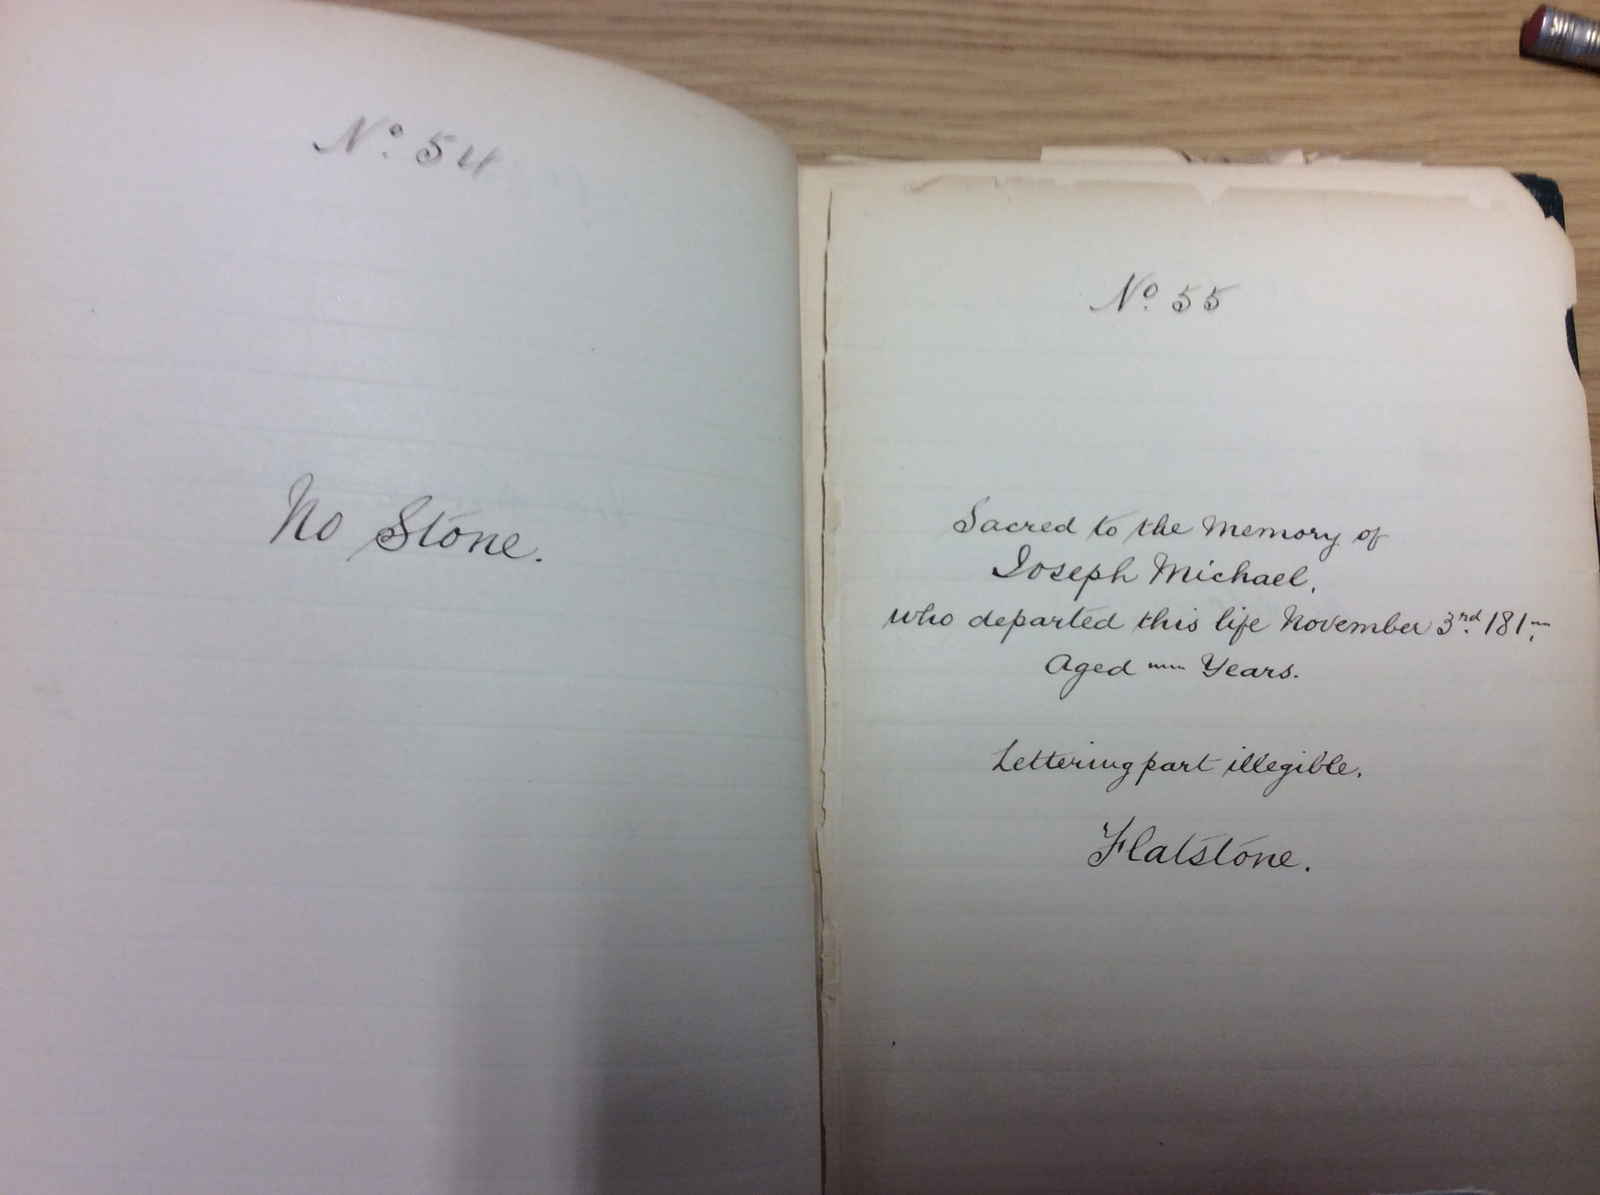 No. 54
No Stone.
No. 55
Sacred to the Memory of
Joseph Michael,
who departed this life November 3rd. 181~,
Aged ~~ Years.
Lettering part illegible.
Flatstone.